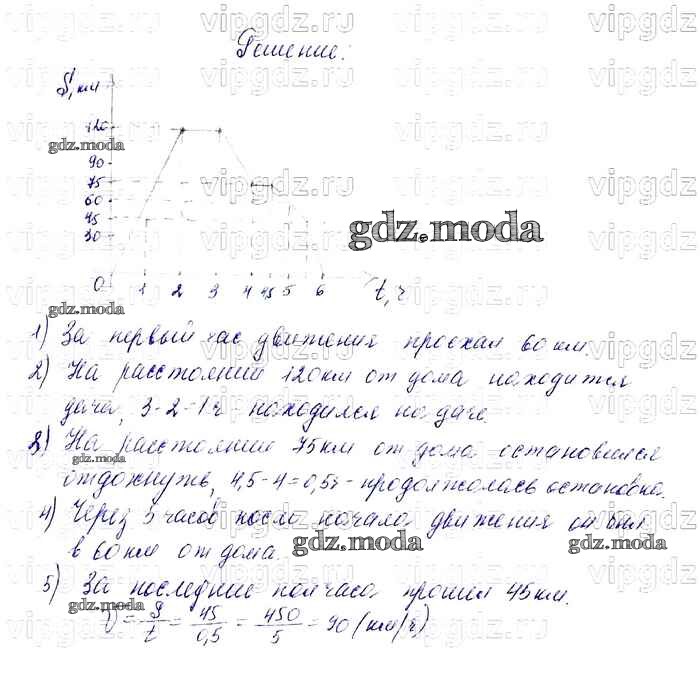 Решение:
S, км
120
90
75
60
45
30
0 1 2 3 4 4,5 5 6 t, ч
1) За первый час движения проехал 60 км.
2) На расстоянии 120 км от дома находится
дача, 3-2=1 ч - находился на даче.
3) На расстоянии 75 км от дома остановился
отдохнуть, 4,5-4=0,5ч - продолжалась остановка.
4) Через 5 часов после начала движения он был
в 60 км от дома.
5) За последние полчаса прошёл 45 км.
V = S/t = 45/0,5 = 450/5 = 90 (км/ч)
gdz.moda
gdz.moda
gdz.moda
gdz.moda
gdz.moda
gdz.moda
gdz.moda
vipgdz.ru